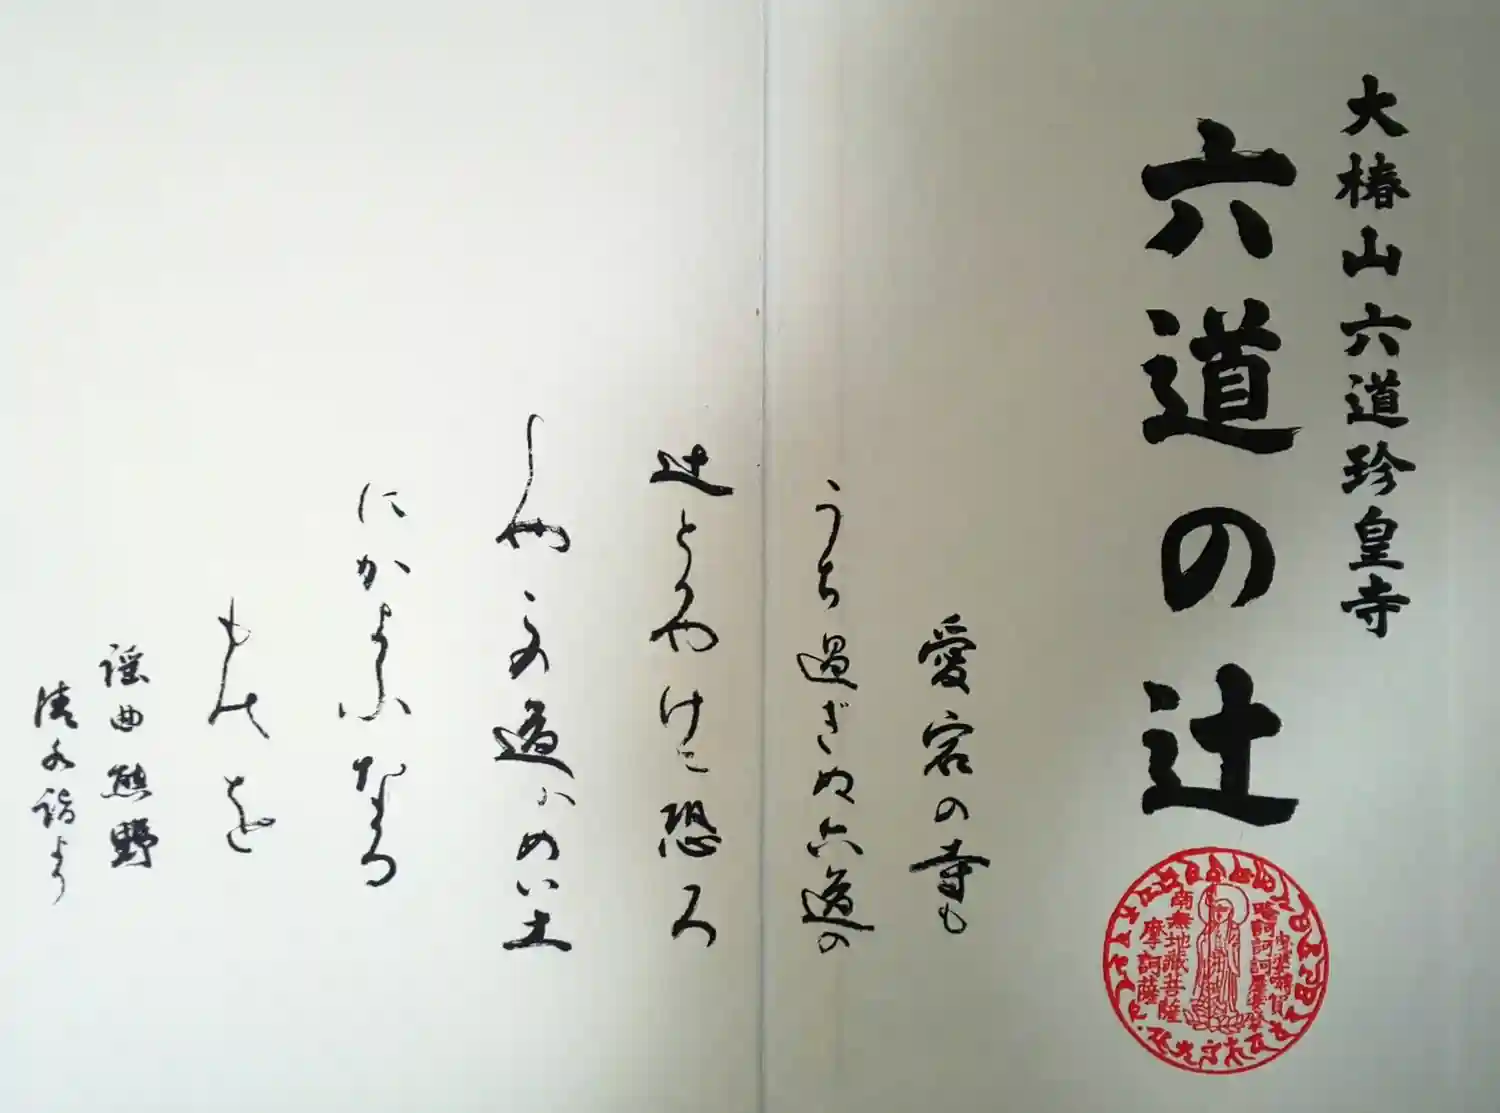 大椿山六道珍皇寺
六道の辻
愛宕の寺も
うち過ぎぬ六道の
辻とかやけに恐ろ
しやこの道はめい土
にかよふなる
ものを
謡曲熊野
清水詣より
南無地蔵菩薩
摩訶薩